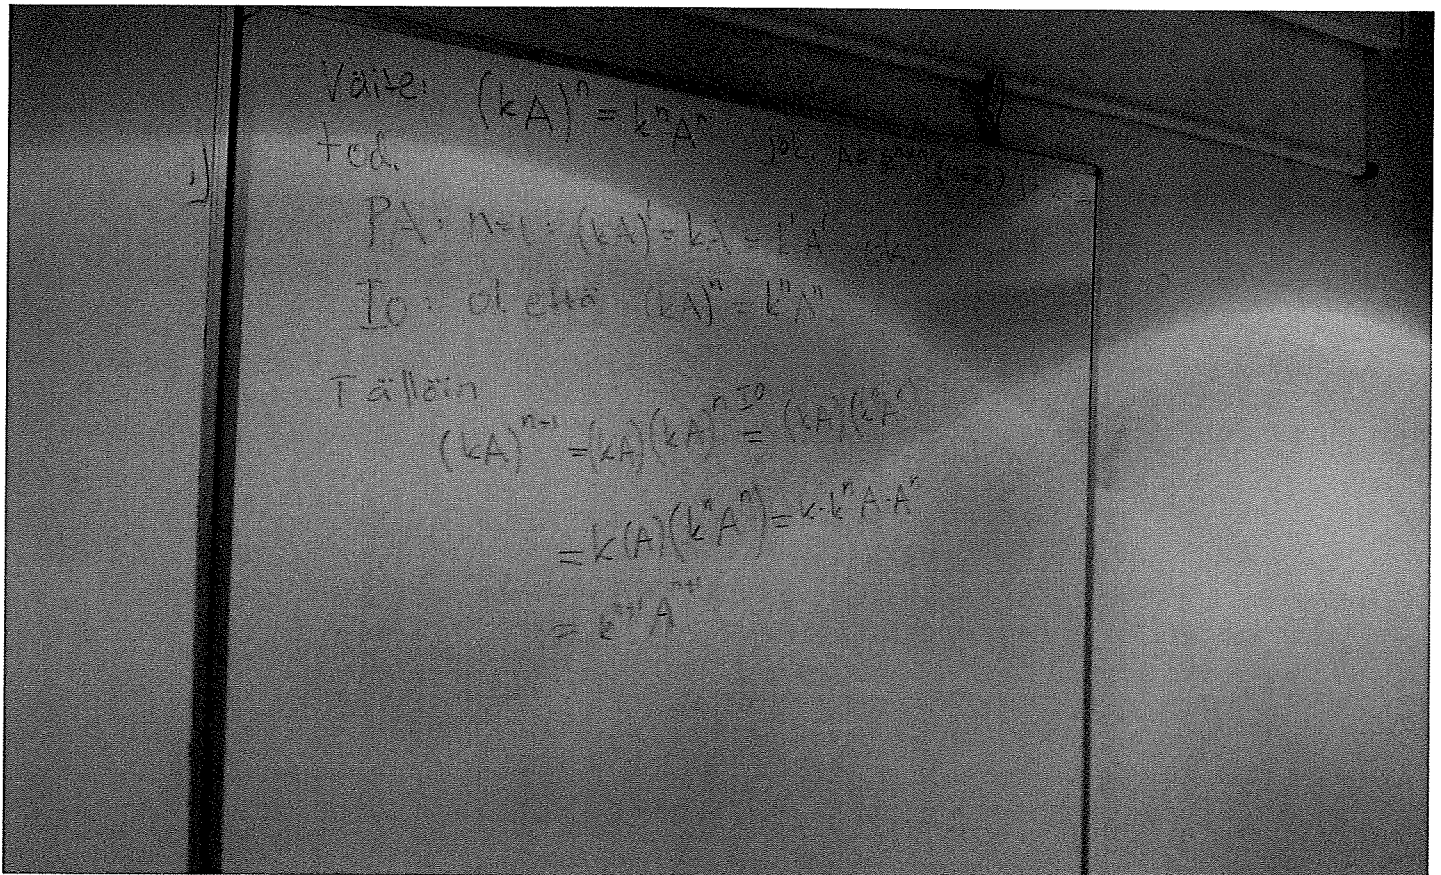 Väite: (kA)ⁿ = kⁿAⁿ
tod.
PA: n=1: (kA)¹ = kA = k¹A¹ ok.
IO: ol. että (kA)ⁿ = kⁿAⁿ.
Tällöin
(kA)ⁿ⁺¹ = (kA)(kA)ⁿ IO= (kA)(kⁿAⁿ)
= k(A)(kⁿAⁿ) = k·kⁿA·Aⁿ
= kⁿ⁺¹Aⁿ⁺¹